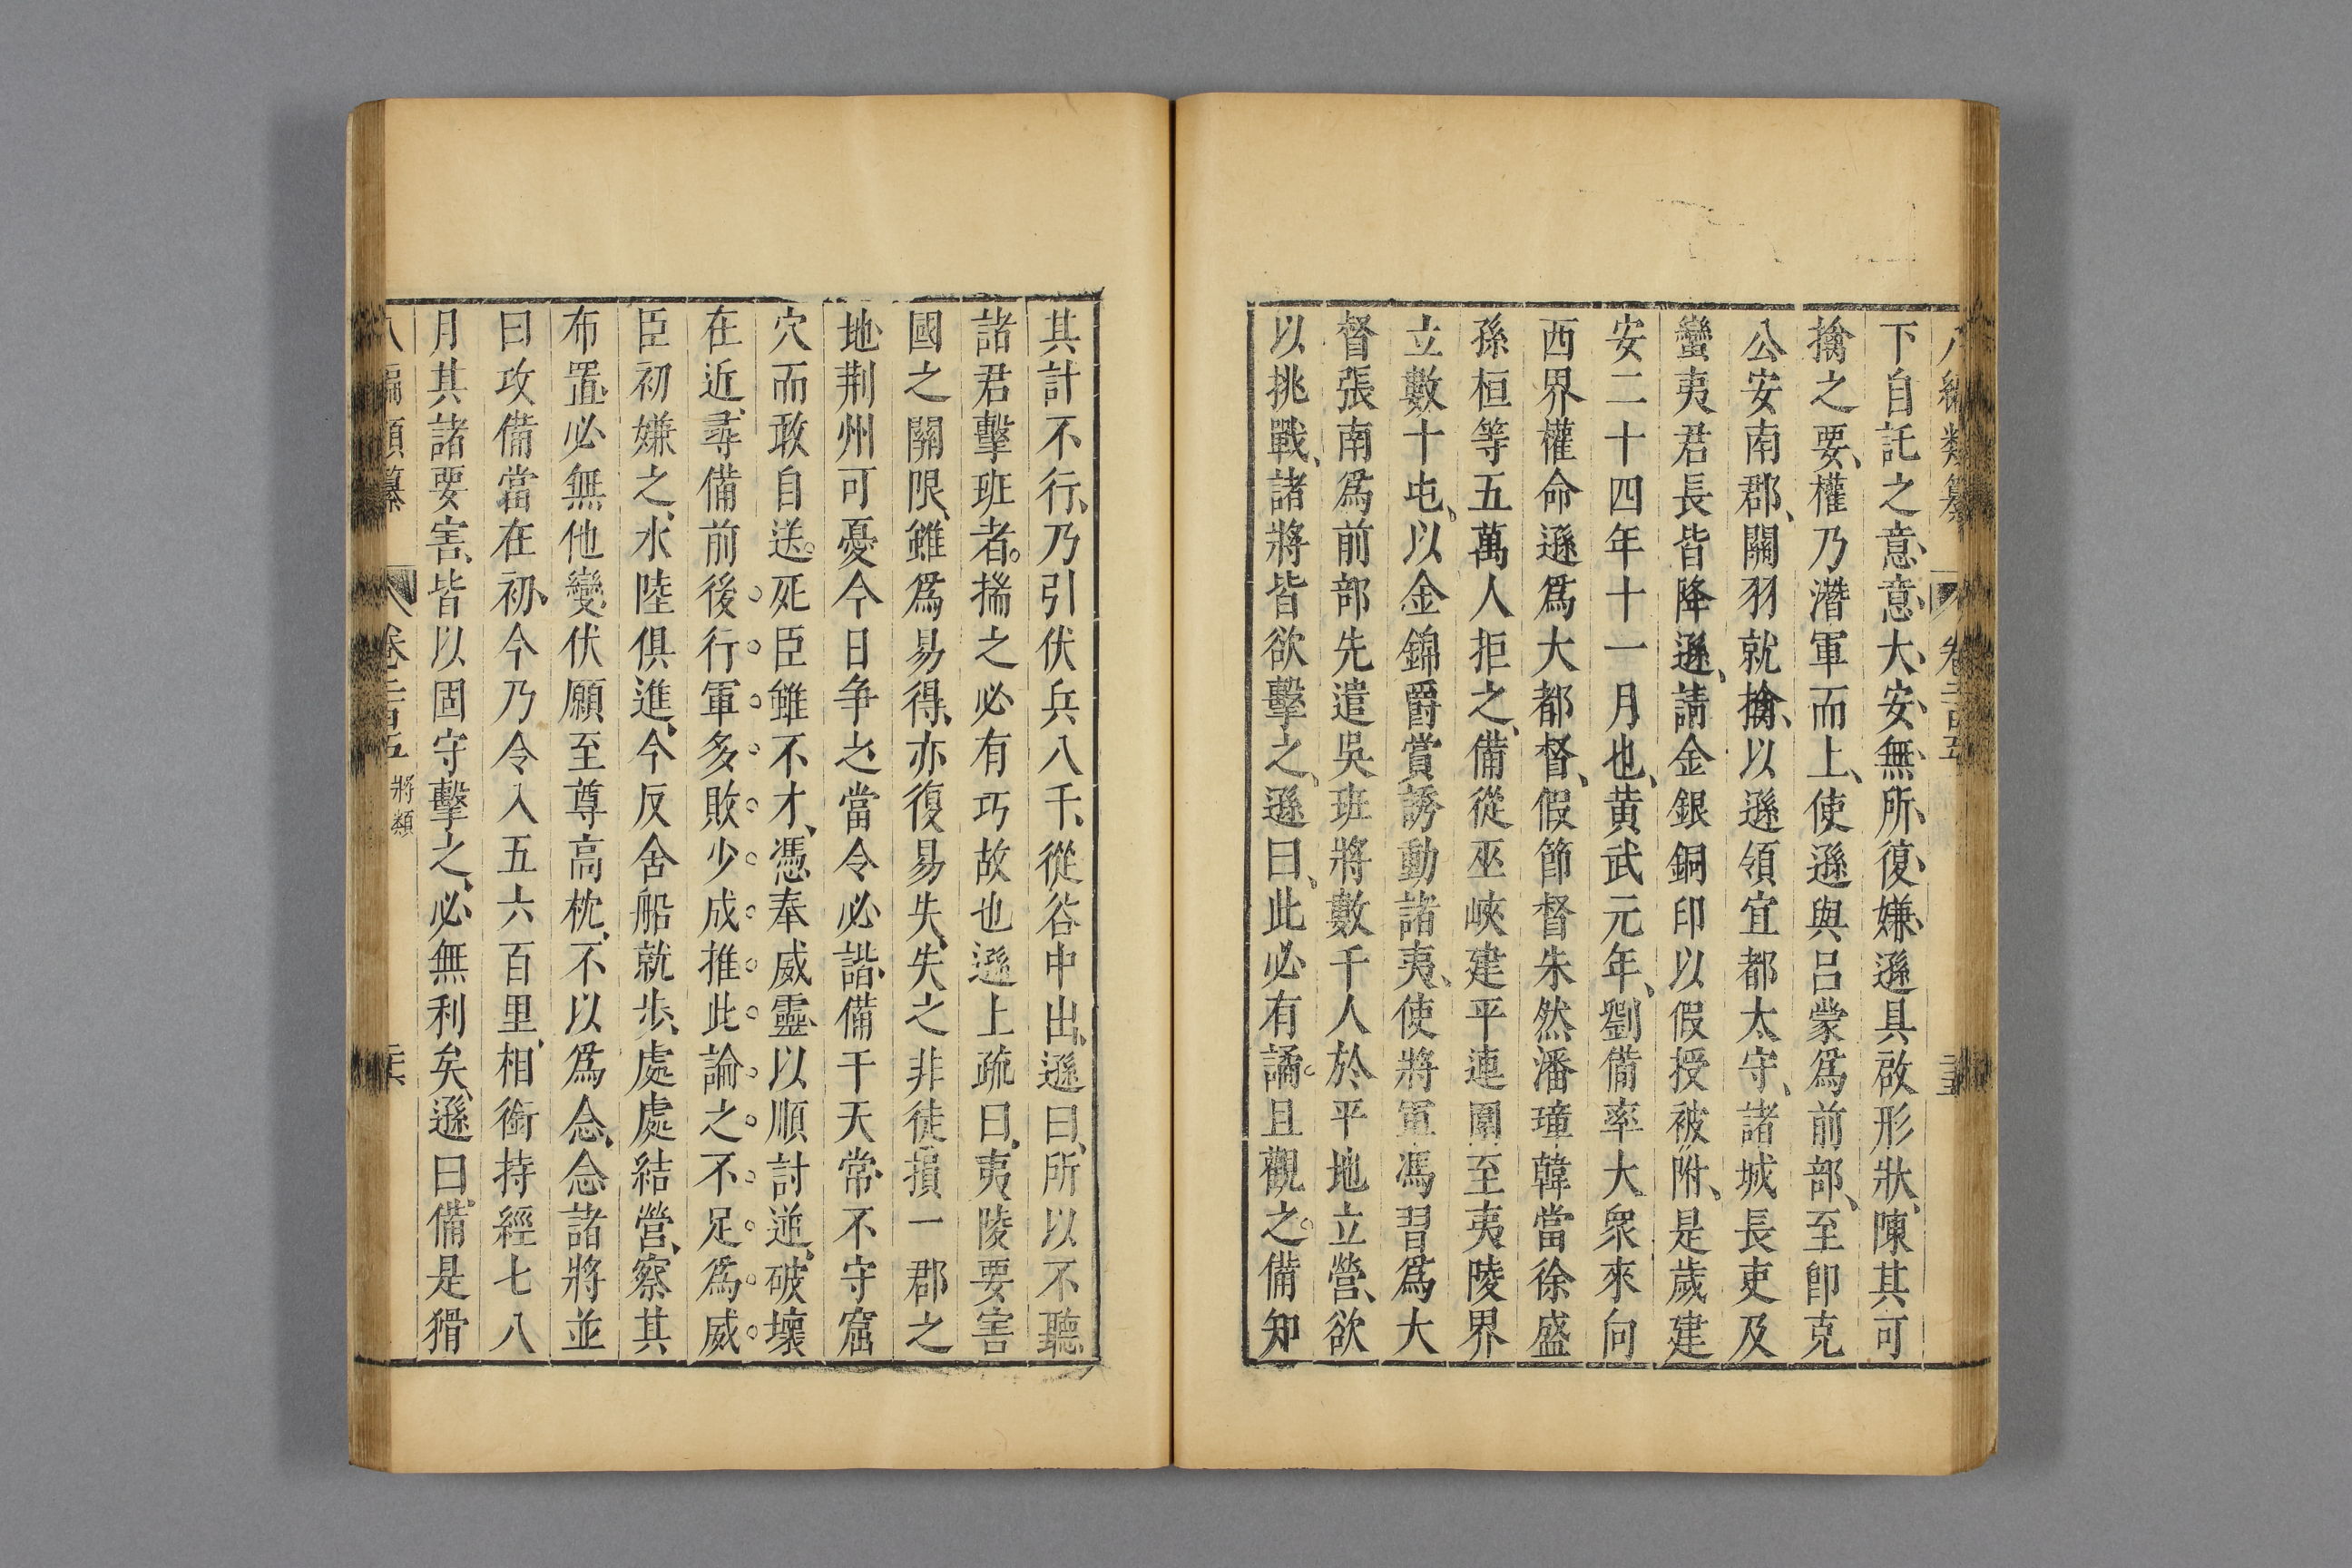 下自託之意、意大安無所復嫌遜具啟形狀、陳其可
擒之要、權乃潛軍而上、使遜與呂蒙爲前部、至卽克
公安南郡、關羽就擒、以遜領宜都太守、諸城長吏及
蠻夷君長皆降遜、請金銀銅印以假授被附、是歲建
安二十四年十一月也、黃武元年、劉備率大衆來向
西界權命遜爲大都督、假節督朱然潘璋韓當徐盛
孫桓等五萬人拒之、備從巫峽建平連圍至夷陵界
立數十屯。以金錦爵賞誘動諸夷、使將軍馮習爲大
督張南爲前部先遣吳班將數千人於平地立營、欲
以挑戰、諸將皆欲擊之、遜曰、此必有譎。且觀之。備知
其計不行、乃引伏兵八千、從谷中出、遜曰、所以不聽
諸君擊班者。揣之必有巧故也遜上疏曰、夷陵要害
國之關限、雖爲易得、亦復易失、失之非徒損一郡之
地、荆州可憂今日爭之當令必諧、備干天常、不守窟
穴而敢自送。死臣雖不才、憑奉威靈以順討逆、破壞
在近、尋備前後行軍多敗少成推此論之不足爲威
臣初嫌之、水陸俱進、今反舍船就步、處處結營、察其
布置、必無他變伏願至尊高枕、不以爲念、念諸將並
曰攻備當在初、今乃令入五六百里、相銜持經七八
月其諸要害、皆以固守擊之、必無利矣、遜曰、備是猾
八編類纂 卷二百五 將類